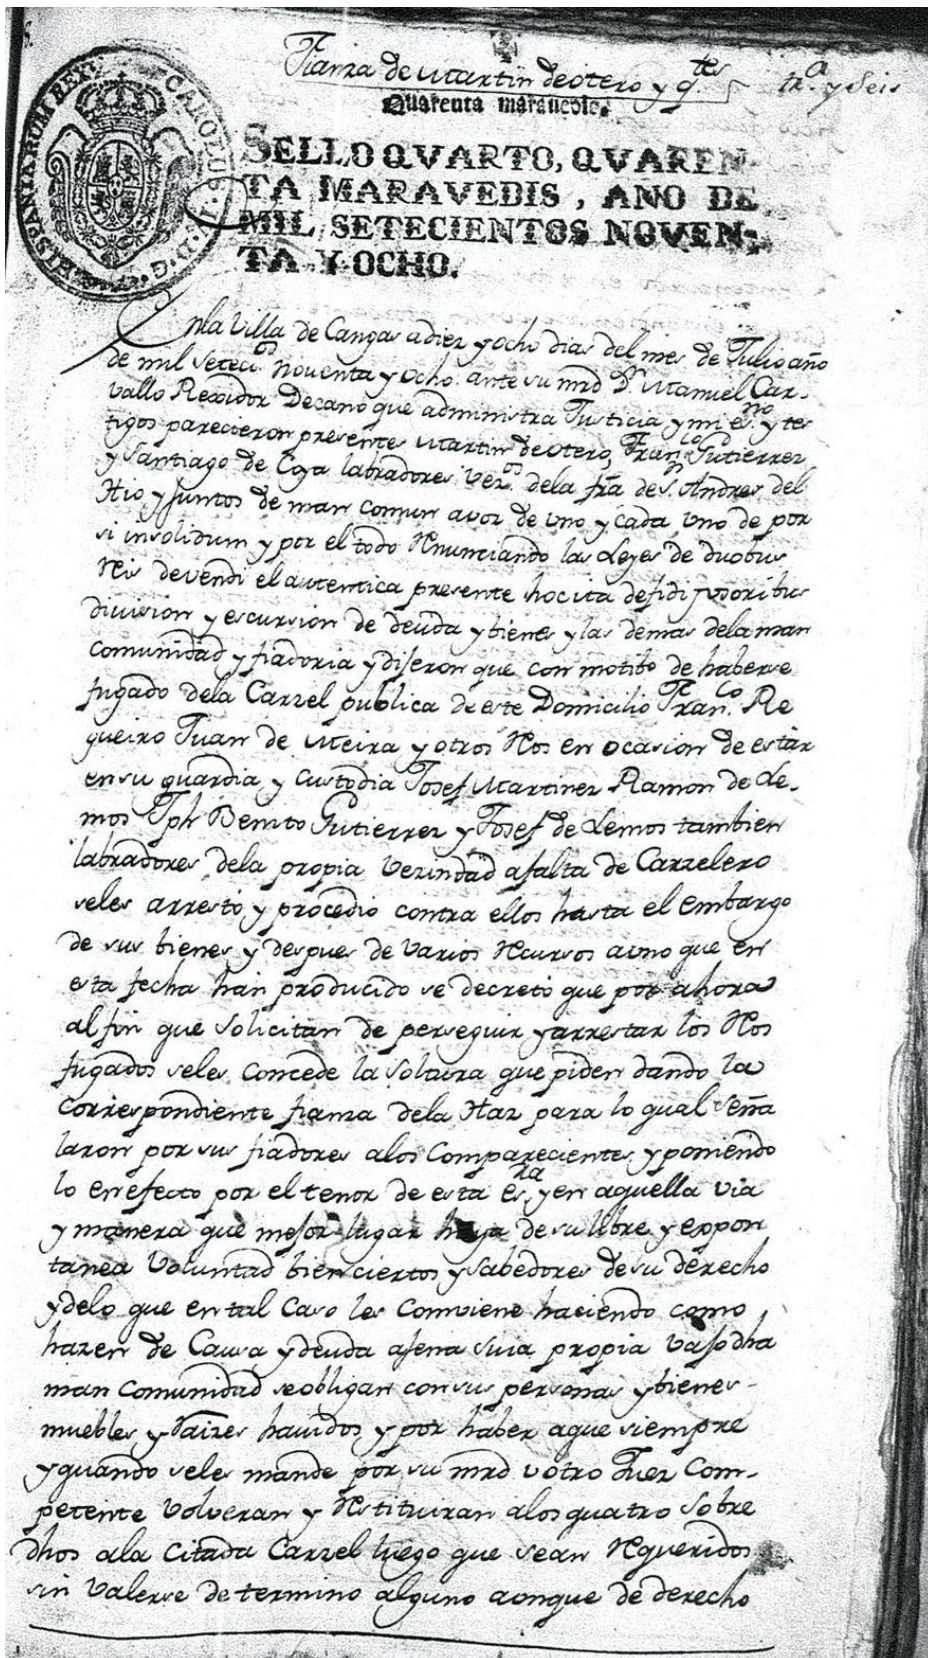 Fianza de Martin de otero y q.tes tr.a y seis
Quarenta maravedis.
SELLO QVARTO, QVAREN-
TA MARAVEDIS, AÑO DE
MIL SETECIENTOS NOVEN-
TA Y OCHO.
CAROLUS IV D. G. HISPANIARUM REX
Enla Villa de Cangas a diez y ocho dias del mes de Julio año
de mil setec.os Noventa y ocho: ante su mrd D.n Manuel Car-
vallo Rexidor Decano que administra Justicia y mi es.no y tes
tigos parecieron presentes Martin de otero, Fran.co Gutierrez
y Santiago de Coya labradores vez.os dela fra de S.n Andres del
Hio y juntos de man comun avoz de uno y cada uno de por
si insolidum y por el todo Renunciando las Leyes de duobus
Reis devendi el autentica presente hocita defidijusoribus
division y escursion de deuda y bienes y las demas dela man
comunidad y fiadoria y dijeron que con motibo de haberse
fugado dela Carzel publica de este Domicilio Fran.co Re
gueiro Juan de Meira y otros Reos en ocasion de estar
en su guardia y custodia Josef Martinez Ramon de Le-
mos Jph Benito Gutierrez y Josef de Lemos tambien
labradores dela propia Vezindad afalta de Carzelero
seles arresto y procedio contra ellos hasta el embargo
de sus bienes y despues de varios Recursos auno que en
esta fecha han producido se decreto que por ahora
al fin que solicitan de perseguir y arrestar los Reos
fugados seles concede la soltura que piden dando la
correspondiente fianza dela Haz para lo qual seña
laron por sus fiadores alos Comparecientes, y poniendo
lo en efecto por el tenor de esta es.ra y en aquella via
y manera que mejor lugar haya de su libre y espon
tanea Voluntad bien ciertos y sabedores de su derecho
y delo que en tal caso les conviene haciendo como
hazen de Causa y deuda ajena suia propia vajo dha
man comunidad se obligan con sus personas y bienes-
muebles y Raizes havidos y por haber a que siempre
y quando seles mande por su mrd u otro Juez Com-
petente Volveran y Restituiran alos quatro sobre
dhos ala citada Carzel luego que sean Requeridos
sin valerse de termino alguno aonque de derecho